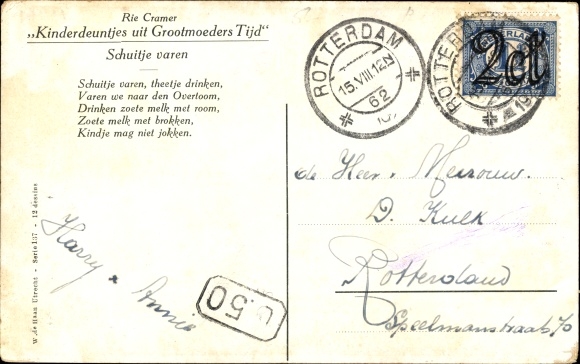 Rie Cramer
„Kinderdeuntjes uit Grootmoeders Tijd“
Schuitje varen
Schuitje varen, theetje drinken,
Varen we naar den Overtoom,
Drinken zoete melk met room,
Zoete melk met brokken,
Kindje mag niet jokken.
W. de Haan Utrecht - Serie 137 - 12 dessins
Harry & Annie
0.50
ROTTERDAM
15.VIII.12N
62
ROTTER
NEDERLAND
2ct
de Heer & Mevrouw.
D. Kulk
Rotterdam
Speelmanstraat